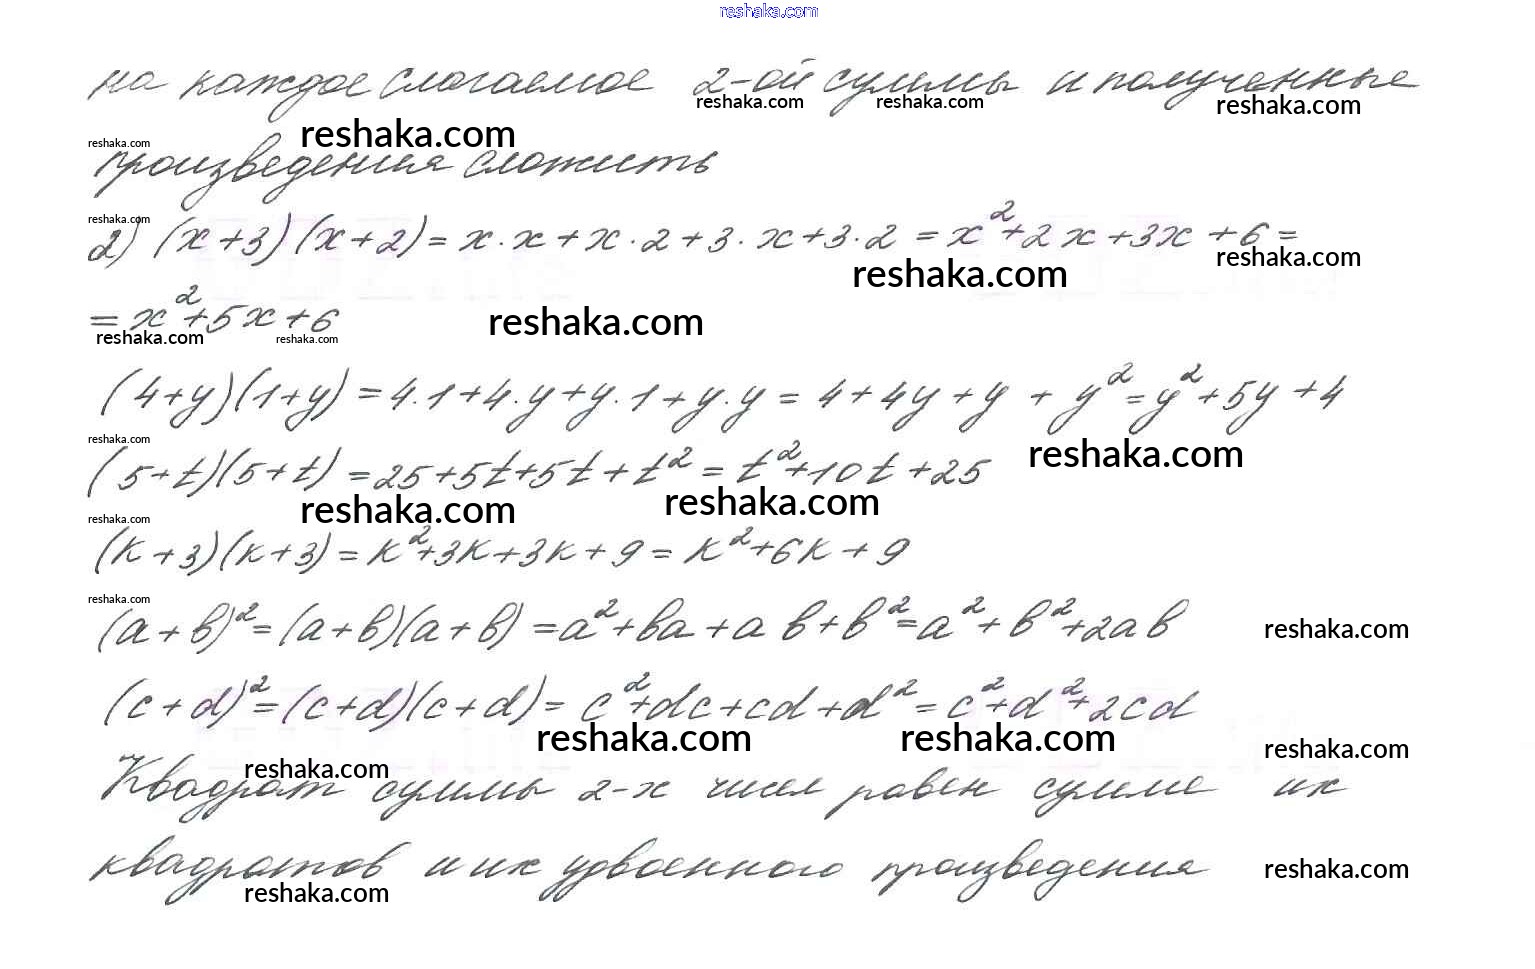 reshaka.com
на каждое слагаемое 2-ой суммы и полученные
reshaka.com reshaka.com reshaka.com
reshaka.com reshaka.com
произведения сложить
reshaka.com
2) (x+3)(x+2) = x·x+x·2+3·x+3·2 = x²+2x+3x+6 =
reshaka.com reshaka.com
= x²+5x+6
reshaka.com reshaka.com reshaka.com
(4+y)(1+y) = 4·1+4·y+y·1+y·y = 4+4y+y+y² = y²+5y+4
reshaka.com reshaka.com
(5+t)(5+t) = 25+5t+5t+t² = t²+10t+25
reshaka.com reshaka.com reshaka.com
(k+3)(k+3) = k²+3k+3k+9 = k²+6k+9
reshaka.com
(a+b)² = (a+b)(a+b) = a²+ba+ab+b² = a²+b²+2ab
reshaka.com
(c+d)² = (c+d)(c+d) = c²+dc+cd+d² = c²+d²+2cd
reshaka.com reshaka.com reshaka.com
reshaka.com
Квадрат суммы 2-х чисел равен сумме их
квадратов и их удвоенного произведения
reshaka.com reshaka.com